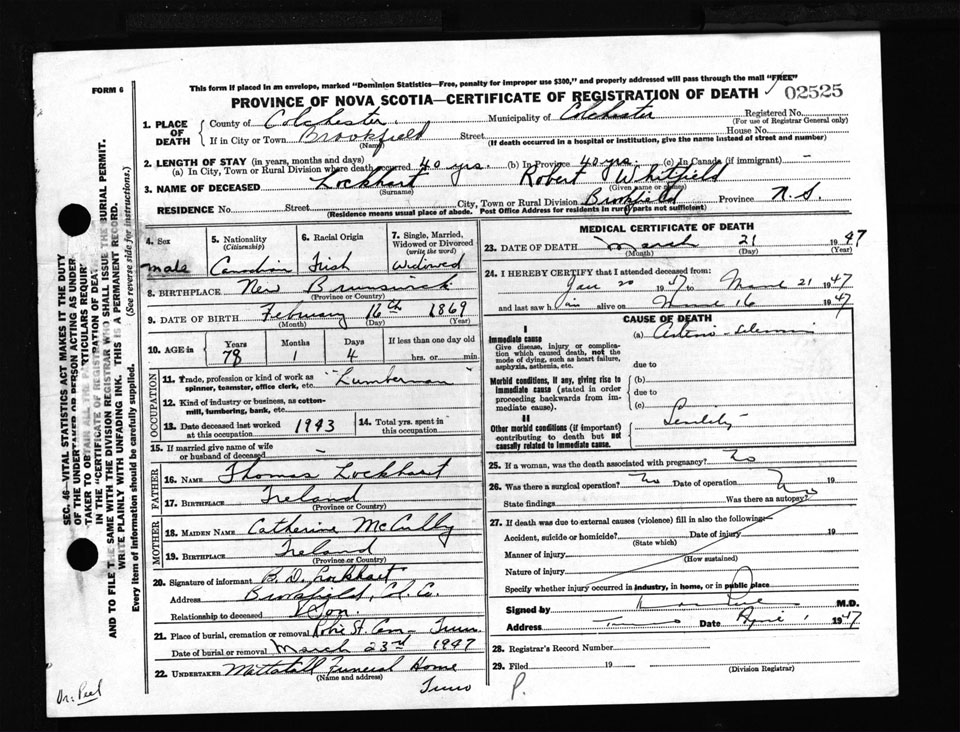 This form if placed in an envelope, marked "Dominion Statistics—Free, penalty for improper use $300," and properly addressed will pass through the mail "FREE"
FORM 6
PROVINCE OF NOVA SCOTIA—CERTIFICATE OF REGISTRATION OF DEATH 02525
1. PLACE OF DEATH
County of Colchester Municipality of Colchester Registered No.
(For use of Registrar General only)
If in City or Town Brookfield Street House No.
(Name) (If death occurred in a hospital or institution, give the name instead of street and number)
2. LENGTH OF STAY (in years, months and days)
(a) In City, Town or Rural Division where death occurred 40 yrs. (b) In Province 40 yrs. (c) In Canada (if immigrant) -
3. NAME OF DECEASED Lockhart Robert Whitfield
(Surname) (Given name or names)
RESIDENCE No. Street City, Town or Rural Division Brookfield Province N.S.
(Residence means usual place of abode. Post Office Address for residents in rural parts not sufficient)
4. Sex
male
5. Nationality
(Citizenship)
Canadian
6. Racial Origin
Irish
7. Single, Married, Widowed or Divorced
(write the word)
Widowed
8. BIRTHPLACE New Brunswick
(Province or Country)
9. DATE OF BIRTH February 16th 1869
(Month) (Day) (Year)
10. AGE in Years Months Days If less than one day old
78 1 4 hrs. or min.
OCCUPATION
11. Trade, profession or kind of work as spinner, teamster, office clerk, etc. "Lumberman"
12. Kind of industry or business, as cotton-mill, lumbering, bank, etc.
13. Date deceased last worked at this occupation 1943
14. Total yrs. spent in this occupation
15. If married give name of wife or husband of deceased -
FATHER
16. NAME Thomas Lockhart
17. BIRTHPLACE Ireland
(Province or Country)
MOTHER
18. MAIDEN NAME Catherine McCully
19. BIRTHPLACE Ireland
(Province or Country)
20. Signature of informant B. D. Lockhart
Address Brookfield, Col. Co.
Relationship to deceased Son.
21. Place of burial, cremation or removal Robie St. Cem - Truro
Date of burial or removal March 23rd 1947
22. UNDERTAKER Mattatall Funeral Home
(Name and address)
Truro
MEDICAL CERTIFICATE OF DEATH
23. DATE OF DEATH March 21 1947
(Month) (Day) (Year)
24. I HEREBY CERTIFY that I attended deceased from:
Jan 20 1947 to March 21 1947
and last saw him alive on March 16 1947
CAUSE OF DEATH
I
Immediate cause
Give disease, injury or complication which caused death, not the mode of dying, such as heart failure, asphyxia, asthenia, etc.
(a) Arterio-sclerosis
due to
Morbid conditions, if any, giving rise to immediate cause (stated in order proceeding backwards from immediate cause).
(b)
due to
(c)
II
Other morbid conditions (if important) contributing to death but not causally related to immediate cause.
Senility
25. If a woman, was the death associated with pregnancy? No
26. Was there a surgical operation? No Date of operation 19
State findings Was there an autopsy? No
27. If death was due to external causes (violence) fill in also the following:
Accident, suicide or homicide? Date of injury 19
(State which)
Manner of injury
(How sustained)
Nature of injury
Specify whether injury occurred in industry, in home, or in public place
Signed by M.D.
Address Truro Date April 1 1947
28. Registrar's Record Number
29. Filed 19
(Division Registrar)
P.
Dr. Peel
SEC. 46—VITAL STATISTICS ACT MAKES IT THE DUTY
OF THE UNDERTAKER OR PERSON ACTING AS UNDER-
TAKER TO OBTAIN ALL THE PARTICULARS REQUIR
IN THE "CERTIFICATE OF REGISTRATION OF DEAT
AND TO FILE THE SAME WITH THE DIVISION REGISTRAR WHO SHALL ISSUE THE BURIAL PERMIT.
WRITE PLAINLY WITH UNFADING INK. THIS IS A PERMANENT RECORD.
Every item of information should be carefully supplied. (See reverse side for instructions.)